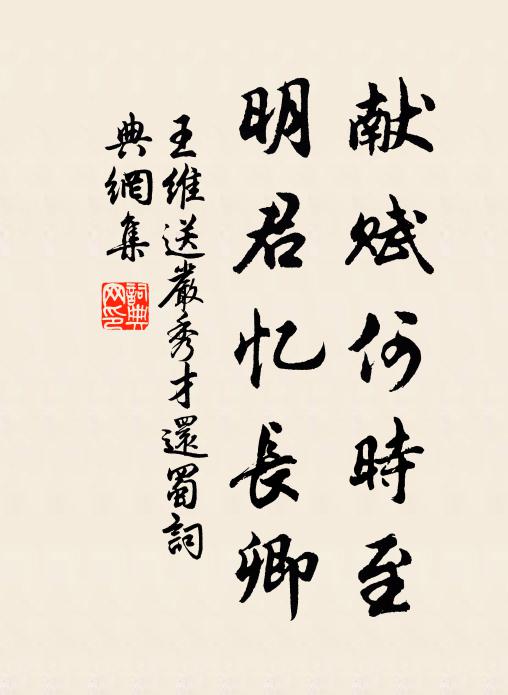 献赋何時至
明君忆長卿
王維送嚴秀才還蜀詞
典網集
詞典
网印